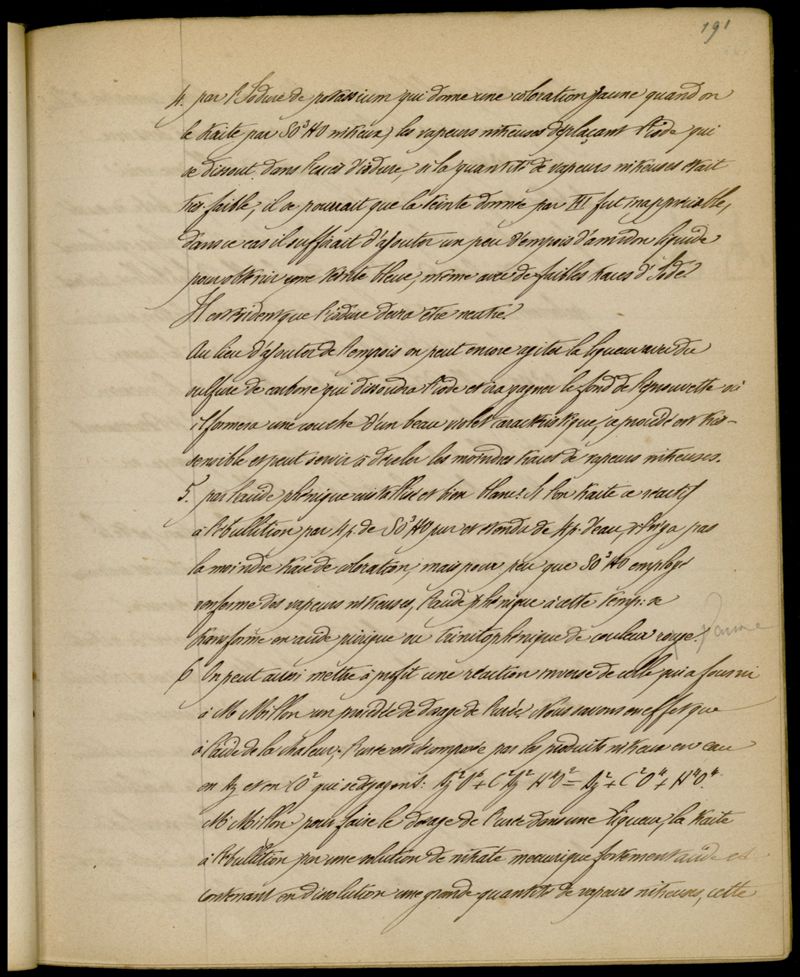 191
4. par l'Iodure de potassium qui donne une coloration jaune quand on
le traite par SO³HO nitreux, les vapeurs nitreuses déplaçant l'iode qui
se dissout dans l'excès d'iodure, si la quantité de vapeurs nitreuses était
très faible, il se pourrait que la teinte donnée par KI fut inappréciable,
dans ce cas il suffirait d'ajouter un peu d'empois d'amidon liquide
pour obtenir une teinte bleue, même avec de faibles traces d'Iode.
Il est évident que l'iodure devra être neutre.
Au lieu d'ajouter de l'empois on peut encore agiter la liqueur avec du
sulfure de carbone qui dissoudra l'iode et ira gagner le fond de l'éprouvette où
il formera une couche d'un beau violet caractéristique, ce procédé est très-
sensible et peut servir à déceler les moindres traces de vapeurs nitreuses.
5. par l'acide phénique cristallisé et bien blanc. Si l'on traite ce réactif
à l'ébullition par 4p. de SO³HO pur et étendu de 4p. d'eau, il n'y a pas
la moindre trace de coloration, mais pour peu que SO³HO employé
renferme des vapeurs nitreuses, l'acide phénique à cette temp. se
transforme en acide picrique ou trinitrophénique de couleur rouge.
+ jaune
6 On peut aussi mettre à profit une réaction inverse de celle qui a fourni
à Mr Millon un procédé de dosage de l'urée. Nous savons en effet que
à l'aide de la chaleur, l'urée est décomposée par les produits nitreux en eau
en Az et en CO² qui se dégagent:
Mr Millon pour faire le dosage de l'urée dans une liqueur, la traite
à l'ébullition par une solution de nitrate mercurique fortement acide et
contenant en dissolution une grande quantité de vapeurs nitreuses, cette